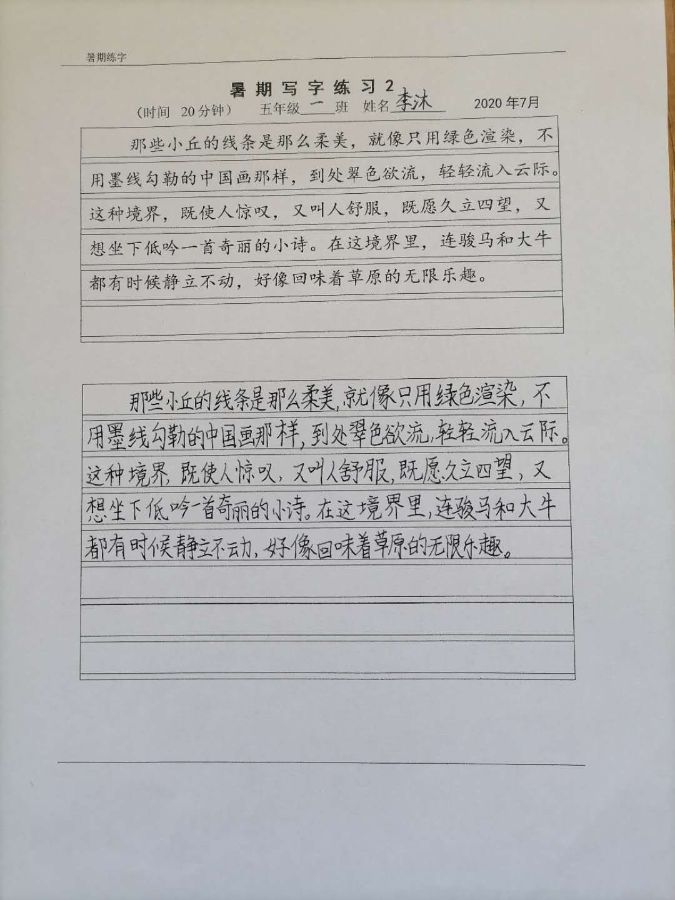 暑期练字
暑期写字练习2
（时间 20分钟） 五年级一班 姓名李沐 2020年7月
那些小丘的线条是那么柔美，就像只用绿色渲染，不
用墨线勾勒的中国画那样，到处翠色欲流，轻轻流入云际。
这种境界，既使人惊叹，又叫人舒服，既愿久立四望，又
想坐下低吟一首奇丽的小诗。在这境界里，连骏马和大牛
都有时候静立不动，好像回味着草原的无限乐趣。
那些小丘的线条是那么柔美，就像只用绿色渲染，不
用墨线勾勒的中国画那样，到处翠色欲流，轻轻流入云际。
这种境界，既使人惊叹，又叫人舒服，既愿久立四望，又
想坐下低吟一首奇丽的小诗。在这境界里，连骏马和大牛
都有时候静立不动，好像回味着草原的无限乐趣。